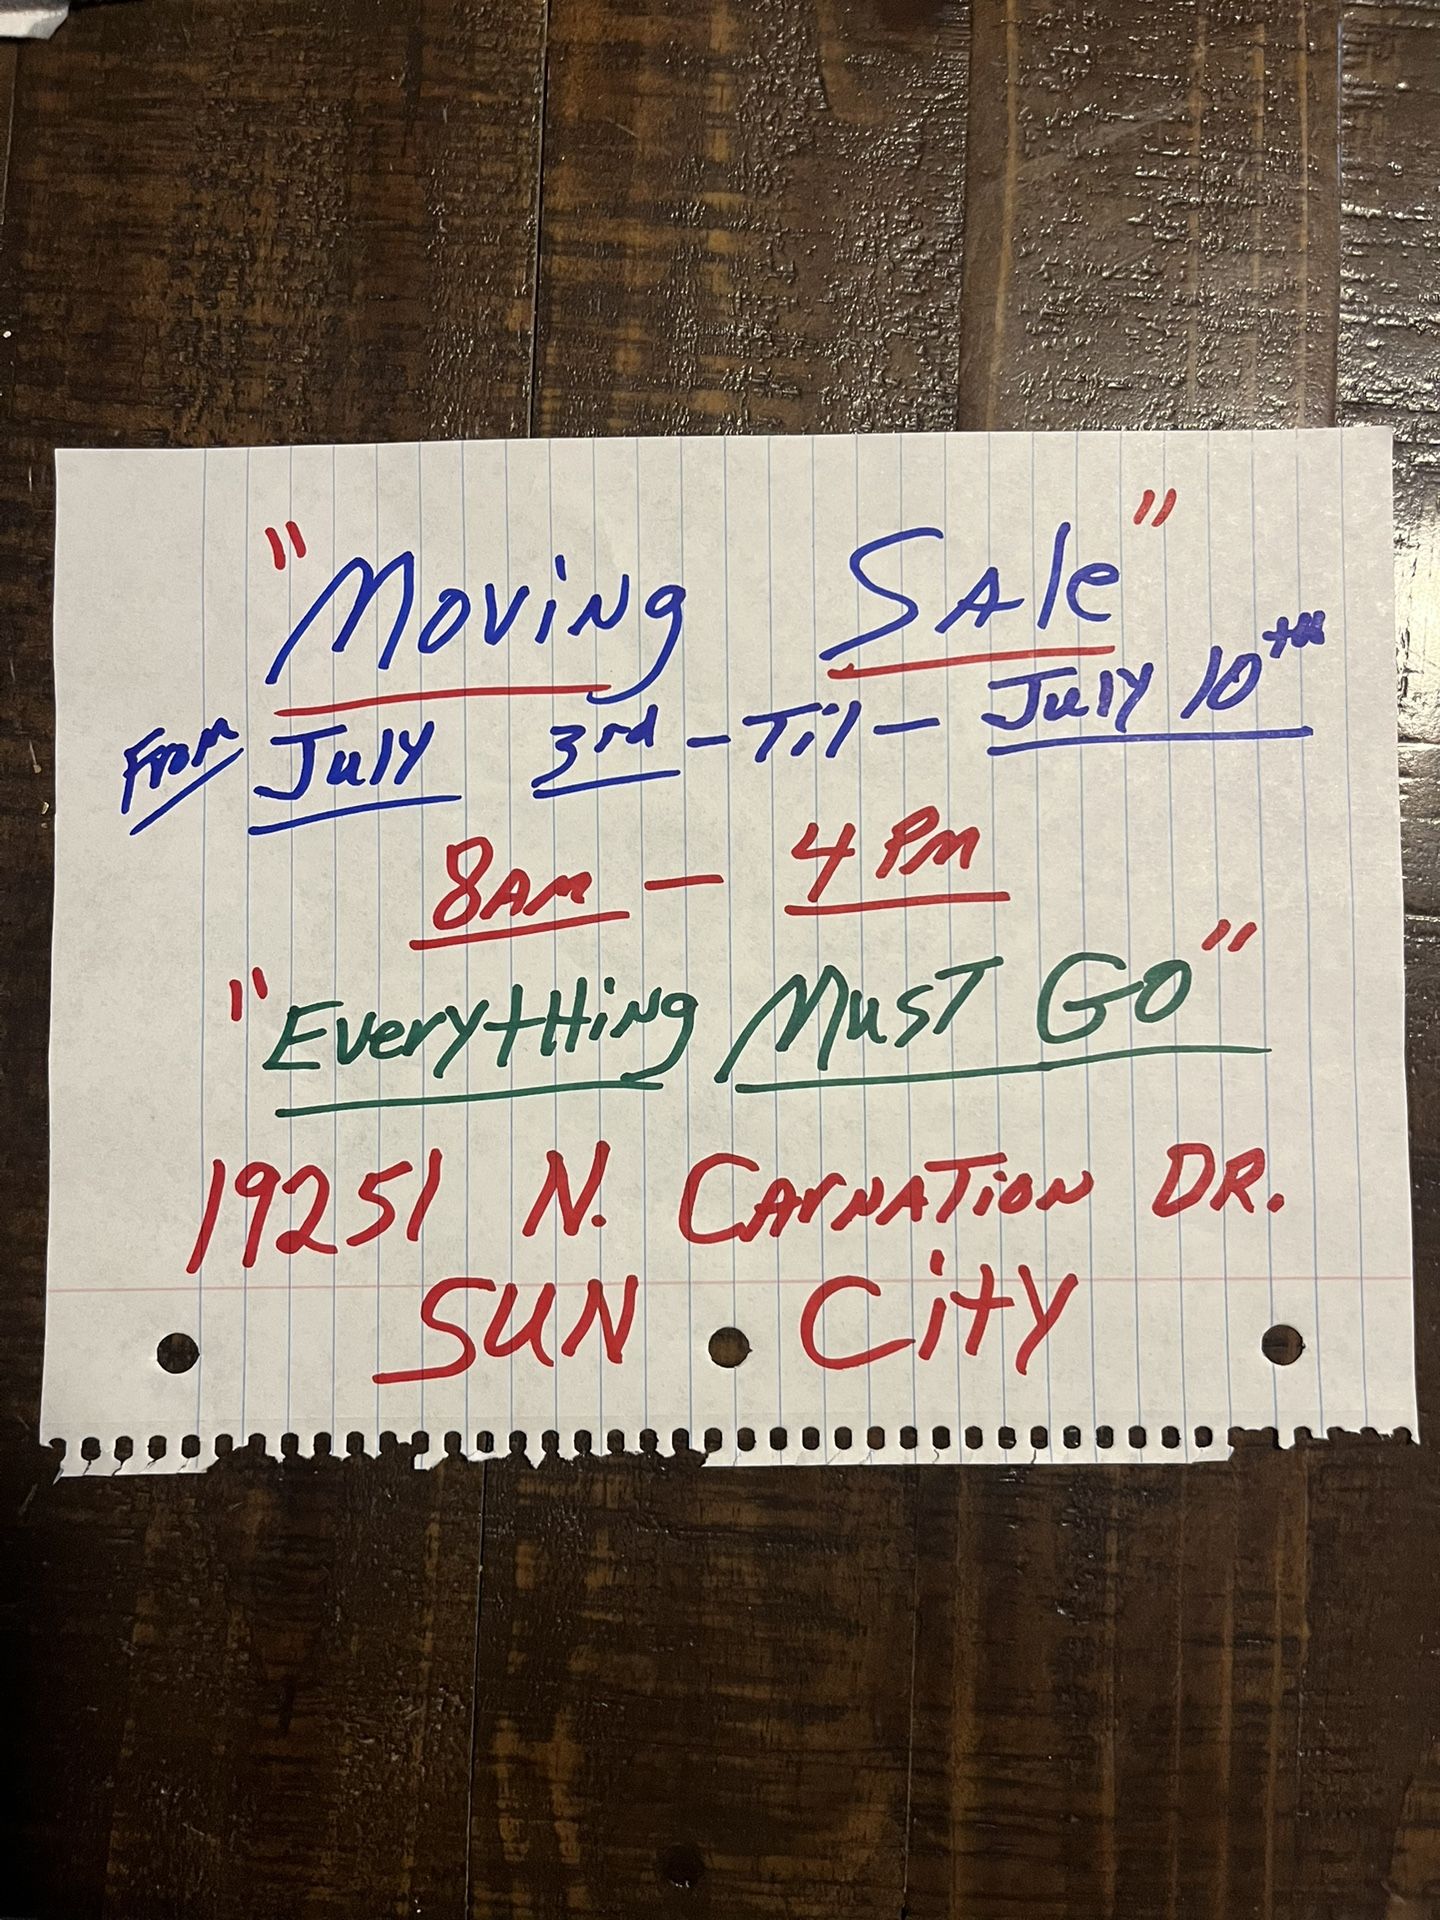 "Moving Sale"
From July 3rd - Til - July 10th
8AM - 4PM
"Everything Must Go"
19251 N. Carnation DR.
SUN City